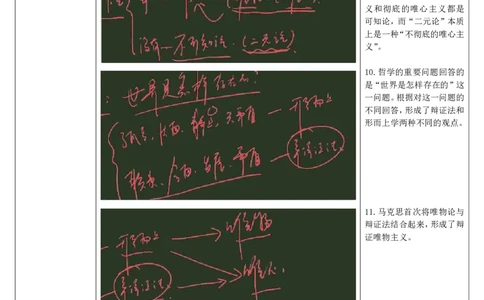 义和彻底的唯心主义都是
可知论，而“二元论”本质
上是一种“不彻底的唯心主
义”。
没有—不可知论.(二元论)
10. 哲学的重要问题回答的
是“世界是怎样存在的”这
一问题。根据对这一问题的
不同回答，形成了辩证法和
形而上学两种不同的观点。
：世界是怎样存在的？
孤立、片面、静止、无矛盾 — 形而上
联系、全面、发展、矛盾 — 辩证法
11. 马克思首次将唯物论与
辩证法结合起来，形成了辩
证唯物主义。
形而上
唯物
辩证法
唯心.